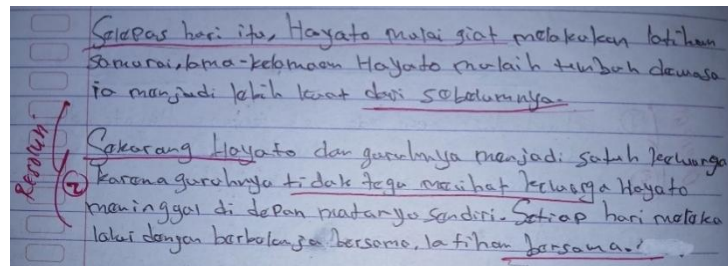 Selepas hari itu, Hayato mulai giat melakukan latihan
samurai, lama-kelamaan Hayato mulaih tumbuh dewasa
ia menjadi lebih kuat dari sebelumnya.
Sekarang Hayato dan guruhnya menjadi satuh keluarga
karena guruhnya tidak tega melihat keluarga Hayato
meninggal di depan matanya sendiri. Setiap hari mereka
lalui dengan berbelanja bersama, latihan bersama.
Resolusi
2